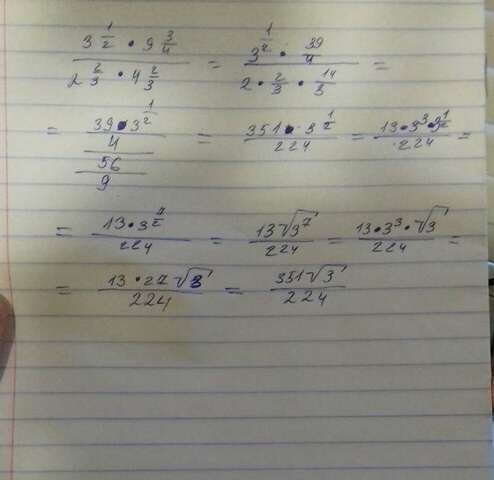 3^{1/2} • 9 3/4 / 2 2/3 • 4 2/3 = 3^{1/2} • 39/4 / 2 • 2/3 • 14/3 =
= 39 • 3^{1/2} / 4 / 56 / 9 = 351 • 3^{1/2} / 224 = 13 • 3^3 • 3^{1/2} / 224 =
= 13 • 3^{7/2} / 224 = 13√3^7 / 224 = 13 • 3^3 • √3 / 224 =
= 13 • 27√3 / 224 = 351√3 / 224